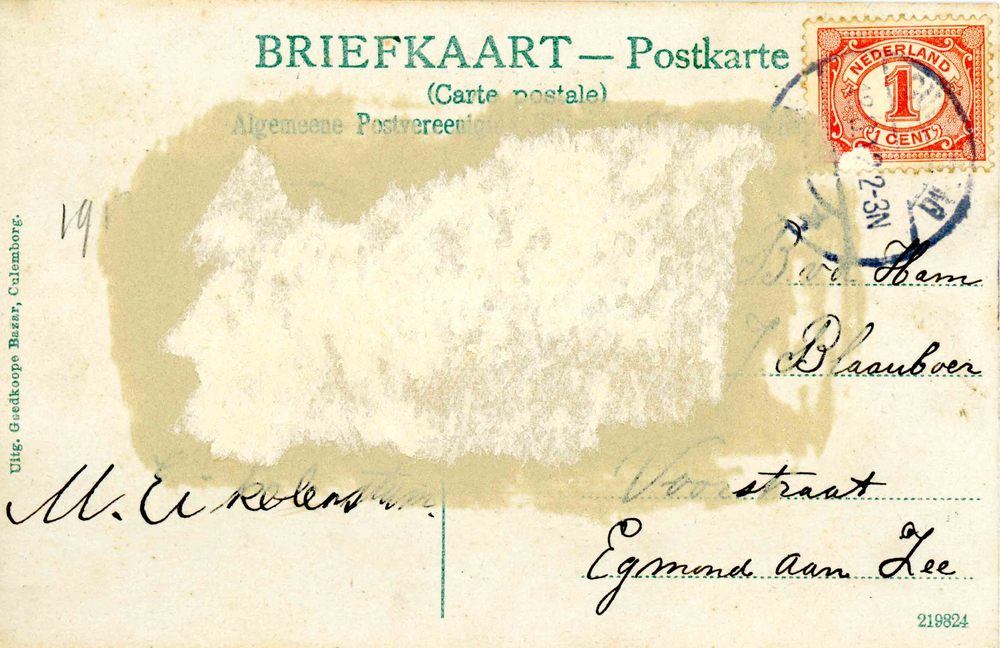 BRIEFKAART — Postkarte
(Carte postale)
Algemeene Postvereeniging
NEDERLAND
1
1 CENT
2-3N
19
B v d Ham
Blaauboer
Voorstraat
Egmond aan Zee
M.
Uitg. Goedkoope Bazar, Culemborg.
219824